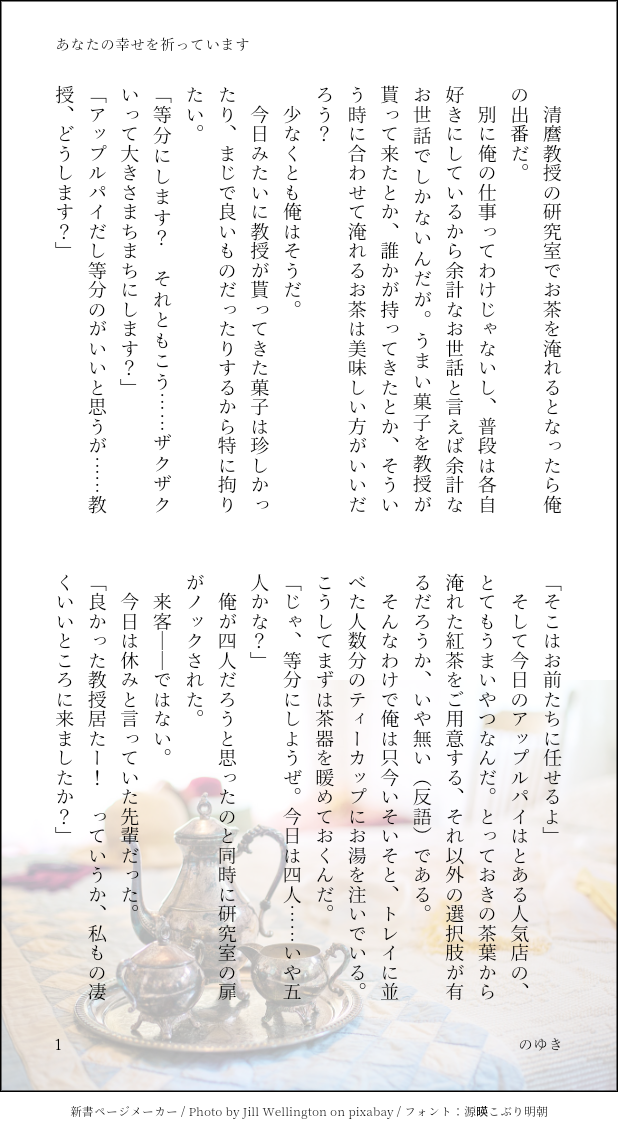 あなたの幸せを祈っています
　清麿教授の研究室でお茶を淹れるとなったら俺
の出番だ。
　別に俺の仕事ってわけじゃないし、普段は各自
好きにしているから余計なお世話と言えば余計な
お世話でしかないんだが。うまい菓子を教授が
貰って来たとか、誰かが持ってきたとか、そうい
う時に合わせて淹れるお茶は美味しい方がいいだ
ろう？
　少なくとも俺はそうだ。
　今日みたいに教授が貰ってきた菓子は珍しかっ
たり、まじで良いものだったりするから特に拘り
たい。
「等分にします？　それともこう……ザクザク
いって大きさまちまちにします？」
「アップルパイだし等分のがいいと思うが……教
授、どうします？」
「そこはお前たちに任せるよ」
　そして今日のアップルパイはとある人気店の、
とてもうまいやつなんだ。とっておきの茶葉から
淹れた紅茶をご用意する、それ以外の選択肢が有
るだろうか、いや無い（反語）である。
　そんなわけで俺は只今いそいそと、トレイに並
べた人数分のティーカップにお湯を注いでいる。
こうしてまずは茶器を暖めておくんだ。
「じゃ、等分にしようぜ。今日は四人……いや五
人かな？」
　俺が四人だろうと思ったのと同時に研究室の扉
がノックされた。
　来客――ではない。
　今日は休みと言っていた先輩だった。
「良かった教授居たー！　っていうか、私もの凄
くいいところに来ましたか？」
のゆき
1
新書ページメーカー / Photo by Jill Wellington on pixabay / フォント：源暎こぶり明朝